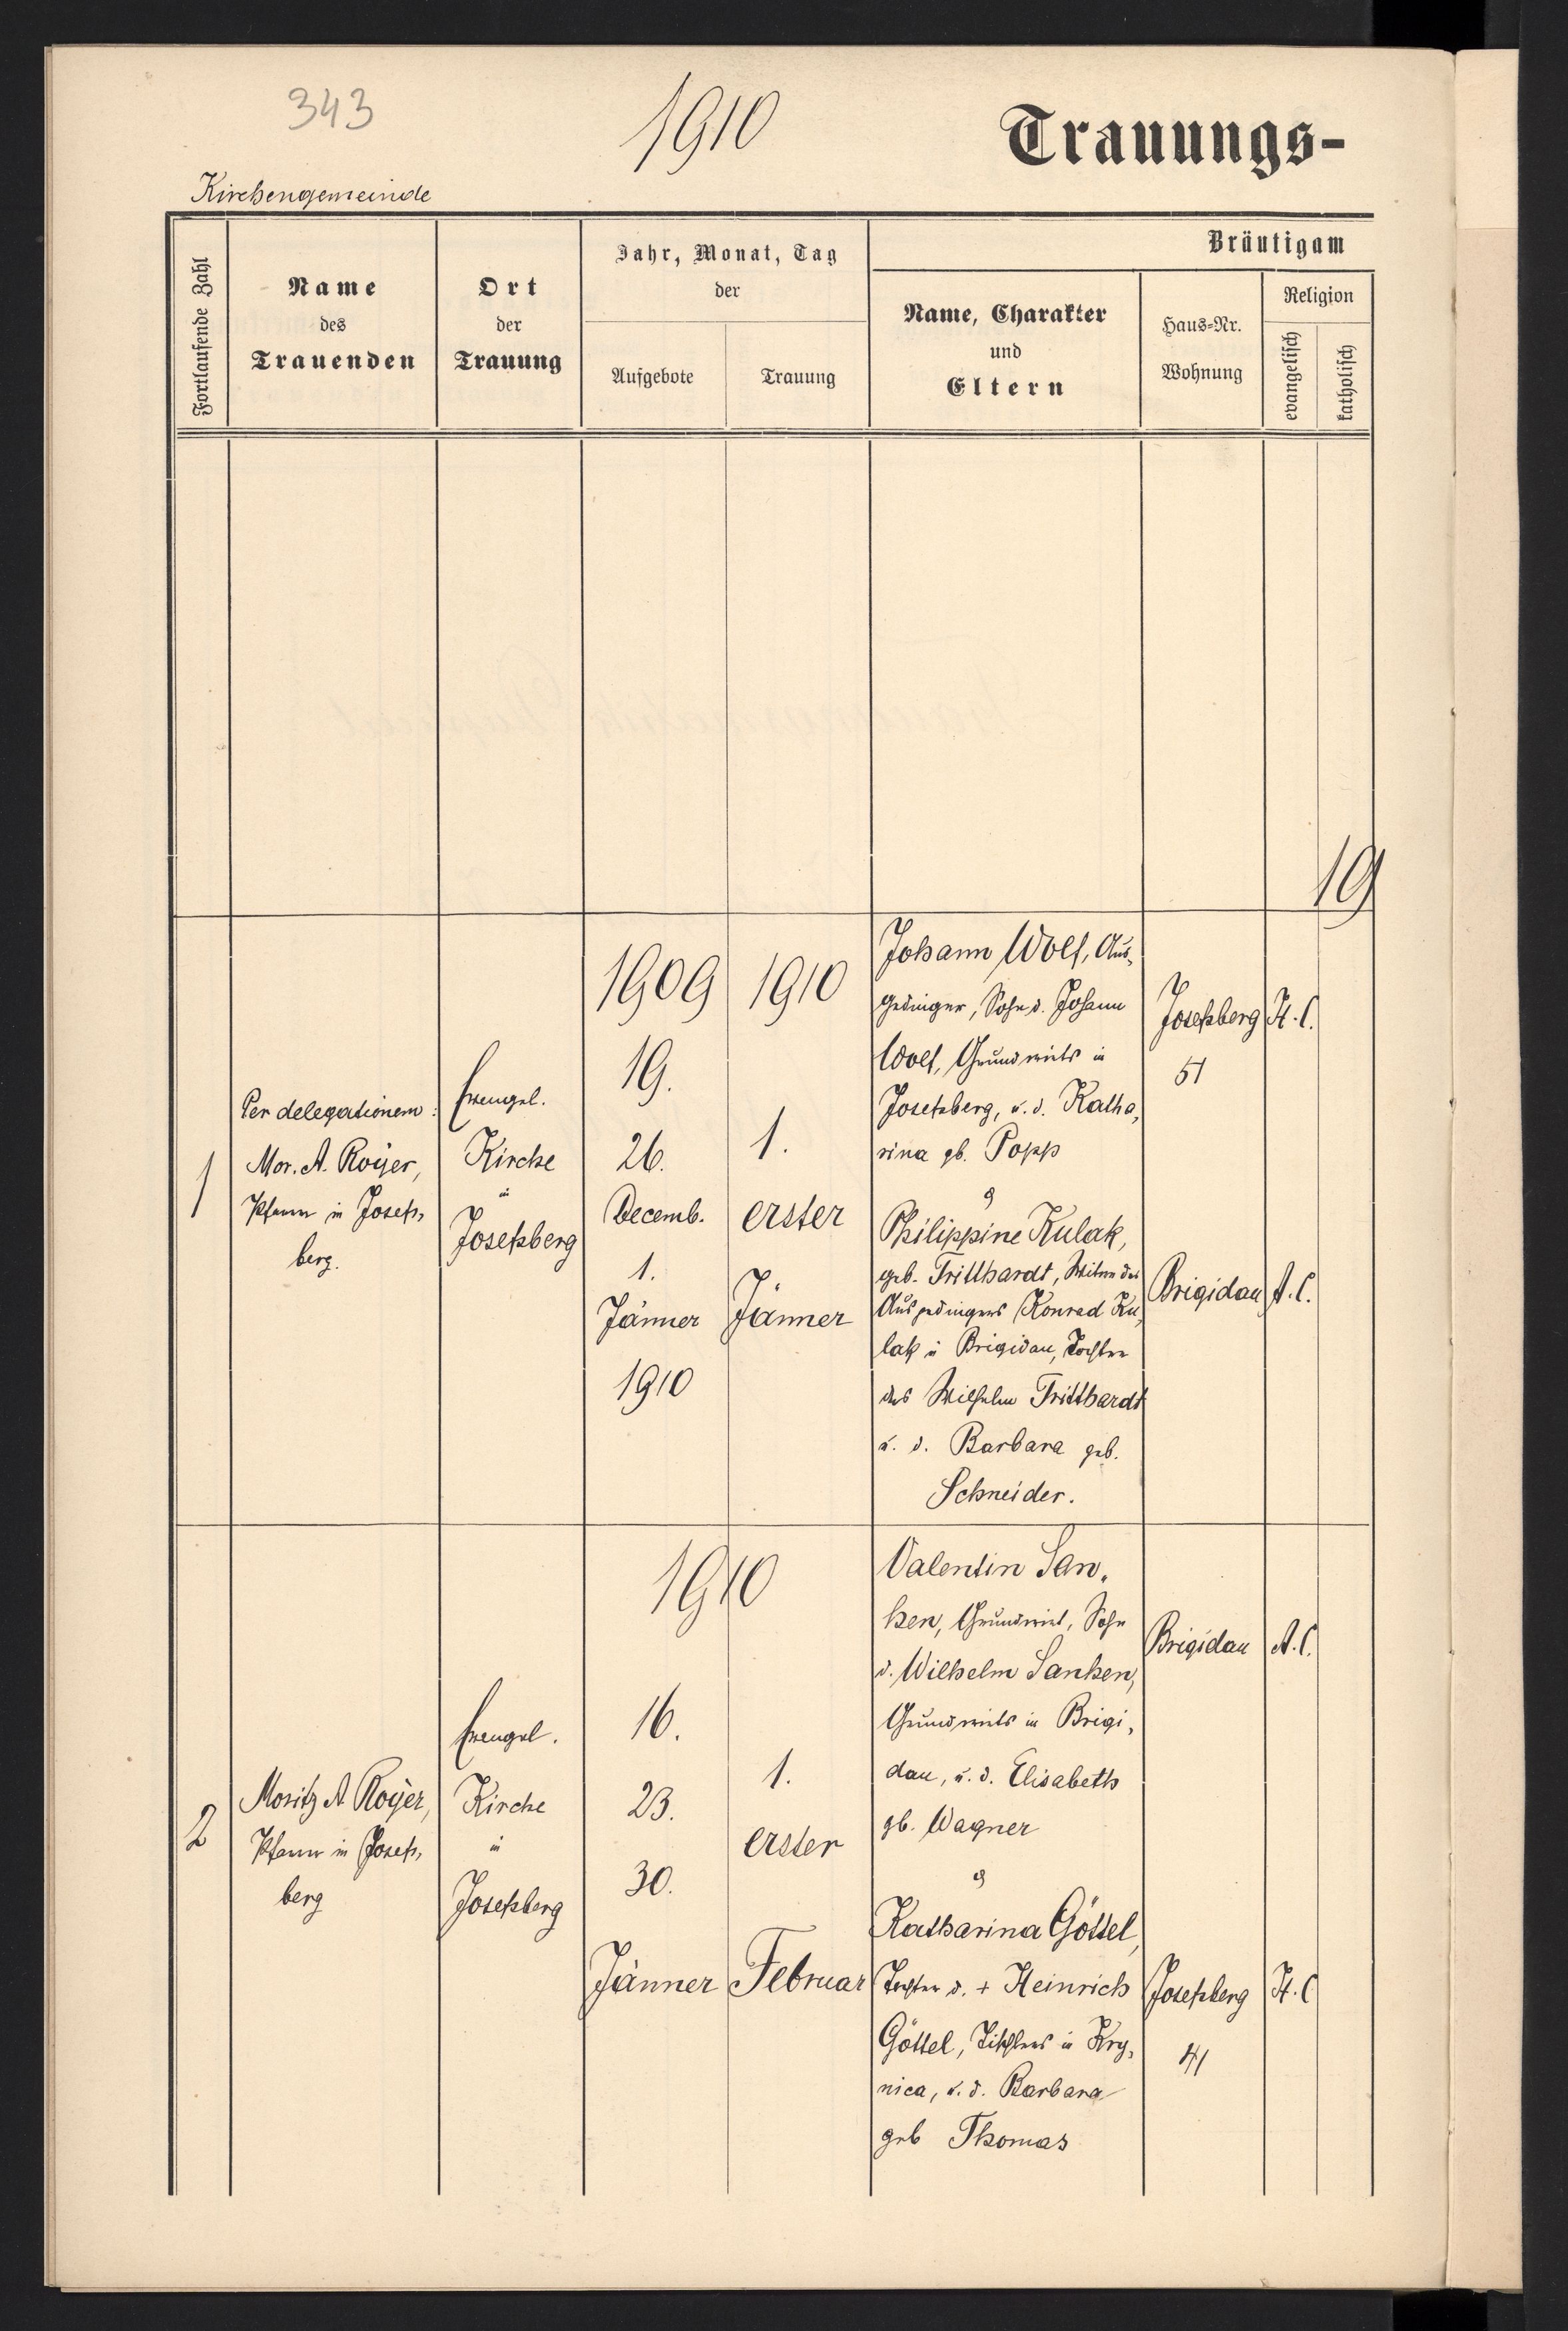 343
1910
Trauungs-
Kirchengemeinde
Fortlaufende Zahl
Name
des
Trauenden
Ort
der
Trauung
Jahr, Monat, Tag
der
Aufgebote
Trauung
Bräutigam
Name, Charakter
und
Eltern
Haus-Nr.
Wohnung
Religion
evangelisch
katholisch
19
1
Per delegationem:
Mor. A. Royer,
Pfarrer in Josefs-
berg.
Evangel.
Kirche
in
Josefsberg
1909
19.
26.
Decemb.
1.
Jänner
1910
1910
1.
erster
Jänner
Johann Wolf, Aus-
gedinger, Sohn d. Johann
Wolf, Grundwirts in
Josefsberg, u. d. Katha-
rina gb. Popp
&
Philippine Kulak,
geb. Tritthardt, Witwe des
Ausgedingers Konrad Ku-
lak in Brigidau, Tochter
des Wilhelm Tritthardt
u. d. Barbara geb.
Schneider.
Josefsberg
51
H.C.
Brigidau
A.C.
2
Moritz A. Royer,
Pfarrer in Josefs-
berg
Evangel.
Kirche
in
Josefsberg
1910
16.
23.
30.
Jänner
1.
erster
Februar
Valentin San-
ken, Grundwirt, Sohn
d. Wilhelm Sanken,
Grundwirts in Brigi-
dau, u. d. Elisabeth
gb. Wagner
&
Katharina Göttel,
Tochter d. + Heinrich
Göttel, Tischlers in Kry-
nica, u. d. Barbara
geb Thomas
Brigidau
A.C.
Josefsberg
41
H.C